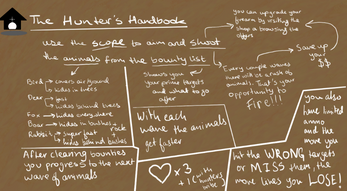 The Hunter's Handbook
use the scope to aim and shoot
the animals from the bounty list
you can upgrade your
firearm by visiting the
shop or browsing the
Save up
your
$$
Bird → covers air ground
hides in
Deer →
hides behind trees
Fox → hides everywhere
Boar → hides in bushes
Rabbit → super fast
rock
hides behind bushes
Shows you
your prime targets
and what to go
after
Every couple waves
there will be a rush of
animals. That's your
opportunity to
FIRE!!!
With each
wave the animals
get faster
After clearing bounties
you progress to the next
wave of animals
x3
you also
have limited
ammo
and the
more you
hit the WRONG targets
or MISS them, the
more lives you LOSE!